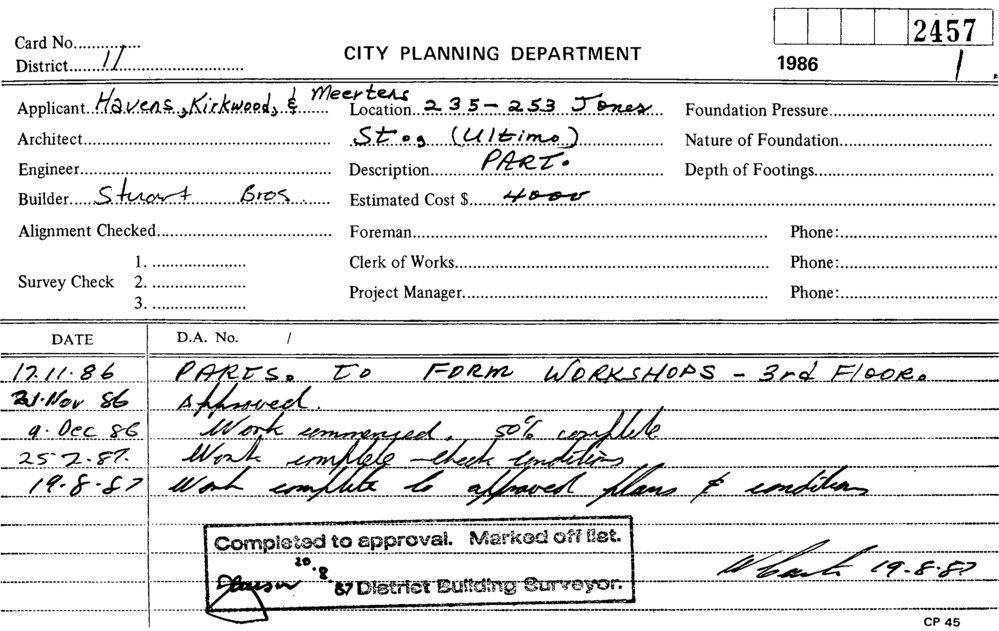 2457
Card No.
CITY PLANNING DEPARTMENT
District 11
1986 1
Applicant Havens, Kirkwood, & Meertens Location 235-253 Jones Foundation Pressure
Architect St (Ultimo) Nature of Foundation
Engineer Description PART. Depth of Footings
Builder Stuart Bros Estimated Cost $ 4000
Alignment Checked Foreman Phone:
1. Clerk of Works Phone:
Survey Check 2.
3. Project Manager Phone:
DATE D.A. No. /
12.11.86 PARTS. TO FORM WORKSHOPS - 3rd FLOOR.
Nov 86 Approved.
9. Dec 86 Work commenced. 50% complete
25-2.87. Work complete - check conditions
19.8.87 Work complete to approved plans & conditions
Completed to approval. Marked off list.
20.8.87 District Building Surveyor.
19.8.87
CP 45